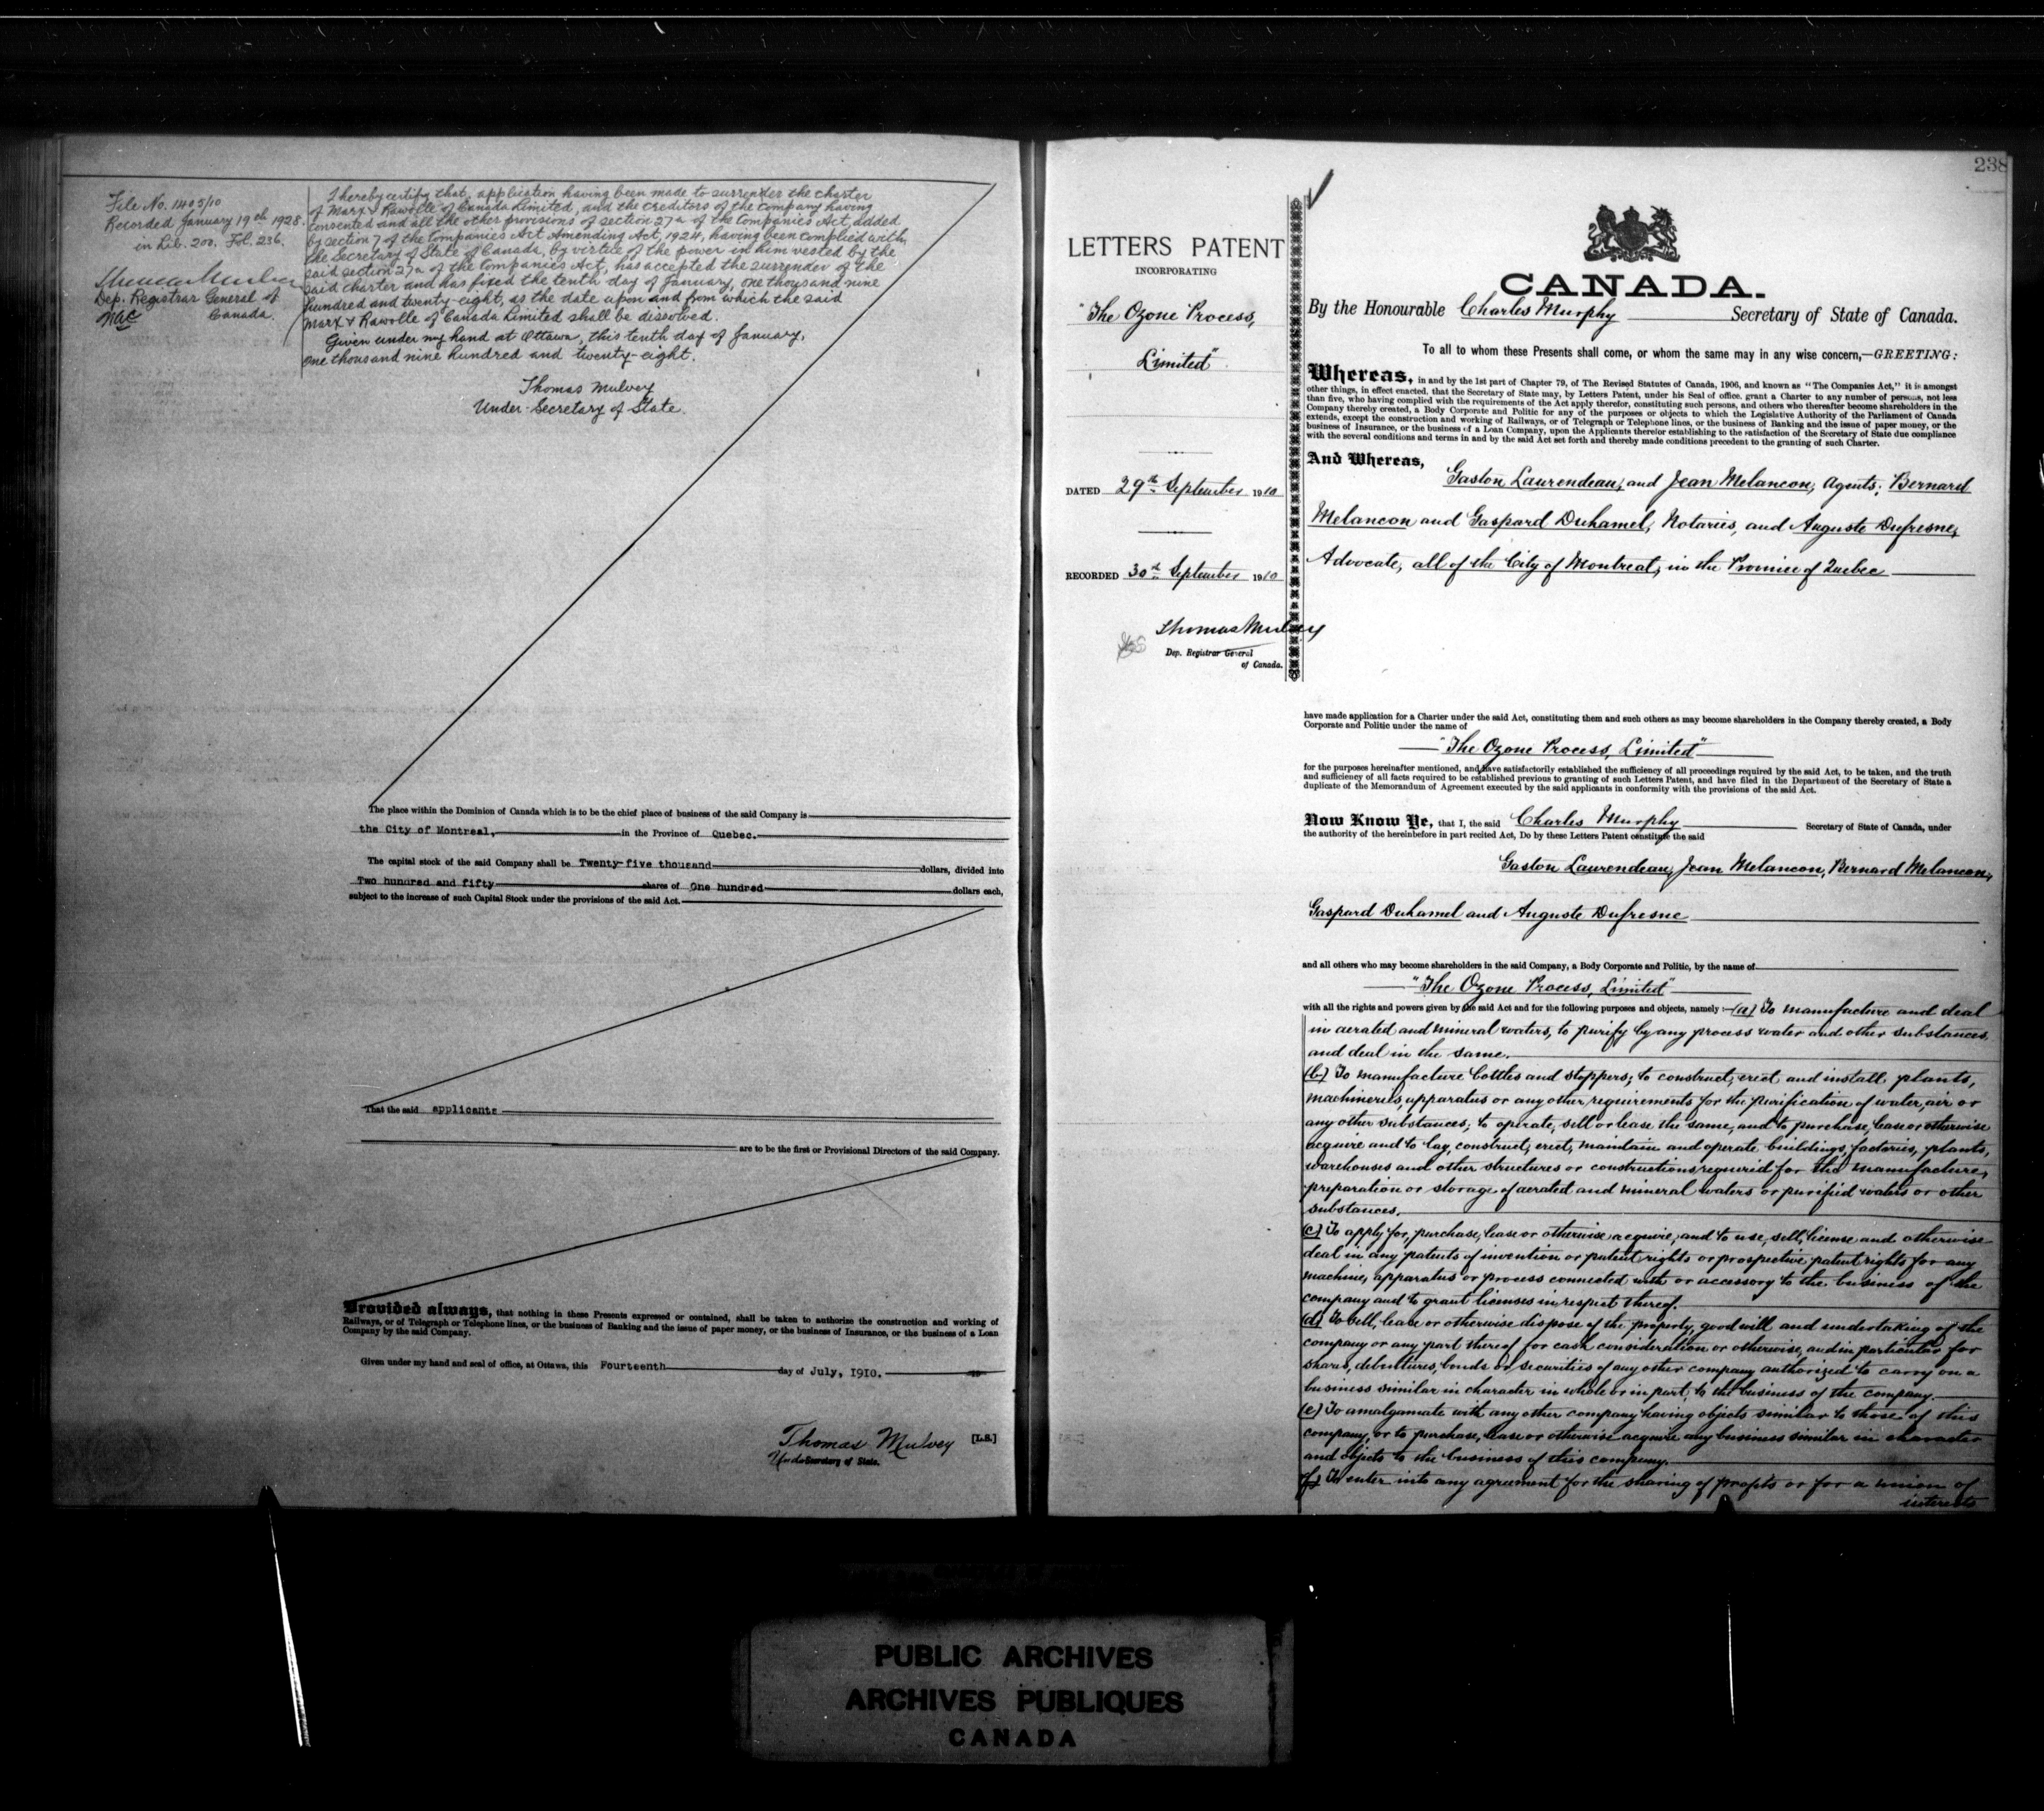 File No. 1405/10
Recorded January 19th 1928.
in Lib. 200. Fol. 236.
Thomas Mulvey
Dep. Registrar General of
Canada.
I hereby certify that, application having been made to surrender the charter
of Marx & Rawolle of Canada Limited, and the creditors of the company having
consented and all the other provisions of section 27a of the Companies Act, added
by section 7 of the Companies Act Amending Act, 1924, having been complied with,
the Secretary of State of Canada, by virtue of the power in him vested by the
said section 27a of the Companies Act, has accepted the surrender of the
said charter and has fixed the tenth day of January, one thousand nine
hundred and twenty-eight, as the date upon and from which the said
Marx & Rawolle of Canada Limited shall be dissolved.
Given under my hand at Ottawa, this tenth day of January,
one thousand nine hundred and twenty-eight.
Thomas Mulvey
Under-Secretary of State
The place within the Dominion of Canada which is to be the chief place of business of the said Company is
the City of Montreal, in the Province of Quebec.
The capital stock of the said Company shall be Twenty-five thousand dollars, divided into
Two hundred and fifty shares of One hundred dollars each,
subject to the increase of such Capital Stock under the provisions of the said Act.
That the said applicants
are to be the first or Provisional Directors of the said Company.
Provided always, that nothing in these Presents expressed or contained, shall be taken to authorize the construction and working of
Railways, or of Telegraph or Telephone lines, or the business of Banking and the issue of paper money, or the business of Insurance, or the business of a Loan
Company by the said Company.
Given under my hand and seal of office, at Ottawa, this Fourteenth day of July, 1910.
Thomas Mulvey [L.S.]
Under Secretary of State.
238
LETTERS PATENT
INCORPORATING
"The Ozone Process,
Limited"
DATED 29th September 1910
RECORDED 30th September 1910
Thomas Mulvey
Dep. Registrar General
of Canada.
CANADA.
By the Honourable Charles Murphy Secretary of State of Canada.
To all to whom these Presents shall come, or whom the same may in any wise concern,—GREETING:
Whereas, in and by the 1st part of Chapter 79, of The Revised Statutes of Canada, 1906, and known as "The Companies Act," it is amongst
other things, in effect enacted, that the Secretary of State may, by Letters Patent, under his Seal of office, grant a Charter to any number of persons, not less
than five, who having complied with the requirements of the Act apply therefor, constituting such persons, and others who thereafter become shareholders in the
Company thereby created, a Body Corporate and Politic for any of the purposes or objects to which the Legislative Authority of the Parliament of Canada
extends, except the construction and working of Railways, or of Telegraph or Telephone lines, or the business of Banking and the issue of paper money, or the
business of Insurance, or the business of a Loan Company, upon the Applicants therefor establishing to the satisfaction of the Secretary of State due compliance
with the several conditions and terms in and by the said Act set forth and thereby made conditions precedent to the granting of such Charter.
And Whereas,
Gaston Laurendeau, and Jean Melancon, Agents; Bernard
Melancon and Gaspard Duhamel, Notaries, and Auguste Dufresne,
Advocate, all of the City of Montreal, in the Province of Quebec
have made application for a Charter under the said Act, constituting them and such others as may become shareholders in the Company thereby created, a Body
Corporate and Politic under the name of
"The Ozone Process, Limited"
for the purposes hereinafter mentioned, and have satisfactorily established the sufficiency of all proceedings required by the said Act, to be taken, and the truth
and sufficiency of all facts required to be established previous to granting of such Letters Patent, and have filed in the Department of the Secretary of State a
duplicate of the Memorandum of Agreement executed by the said applicants in conformity with the provisions of the said Act.
Now Know Ye, that I, the said Charles Murphy Secretary of State of Canada, under
the authority of the hereinbefore in part recited Act, Do by these Letters Patent constitute the said
Gaston Laurendeau, Jean Melancon, Bernard Melancon,
Gaspard Duhamel and Auguste Dufresne
and all others who may become shareholders in the said Company, a Body Corporate and Politic, by the name of
"The Ozone Process, Limited"
with all the rights and powers given by the said Act and for the following purposes and objects, namely :—(a) To manufacture and deal
in aerated and mineral waters, to purify by any process water and other substances
and deal in the same.
(b) To manufacture bottles and stoppers; to construct, erect and install plants,
machineries, apparatus or any other requirements for the purification of water, air or
any other substances; to operate, sell or lease the same, and to purchase, lease or otherwise
acquire and to lay, construct, erect, maintain and operate buildings, factories, plants,
warehouses and other structures or constructions required for the manufacture,
preparation or storage of aerated and mineral waters or purified waters or other
substances.
(c) To apply for, purchase, lease or otherwise acquire, and to use, sell, license and otherwise
deal in any patents of invention or patent rights or prospective patent rights for any
machine, apparatus or process connected with or accessory to the business of the
company and to grant licenses in respect thereof.
(d) To sell, lease or otherwise dispose of the property, good will and undertaking of the
company or any part thereof for cash consideration or otherwise, and in particular for
shares, debentures, bonds or securities of any other company authorized to carry on a
business similar in character in whole or in part, to the business of the company.
(e) To amalgamate with any other company having objects similar to those of this
company, or to purchase, lease or otherwise acquire any business similar in character
and objects to the business of this company.
(f) To enter into any agreement for the sharing of profits or for a union of
interests
PUBLIC ARCHIVES
ARCHIVES PUBLIQUES
CANADA